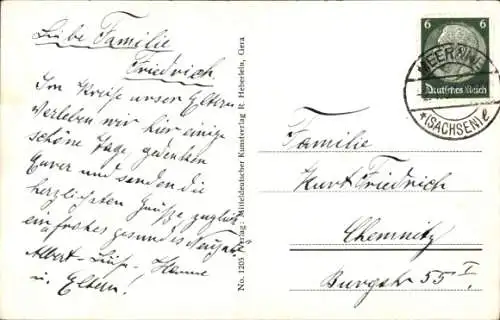 Liebe Familie
Friedrich
Im Kreise unser Eltern
verleben wir hier einige
schöne Tage, gedenken
Eurer und senden die
herzlichsten Grüße zugleich
ein frohes gesundes Neujahr.
Albert - Luise - Hanne
u. Eltern!
No. 1205 Verlag: Mitteldeutscher Kunstverlag R. Heberlein, Gera
9
6 6
Deutsches Reich
MEERANE
*(SACHSEN) e
Familie
Kurt Friedrich
Chemnitz
Burgstr 55 I.